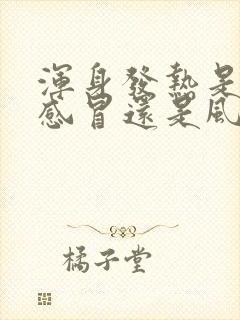 渾身發熱是
感冒還是風
橘子堂